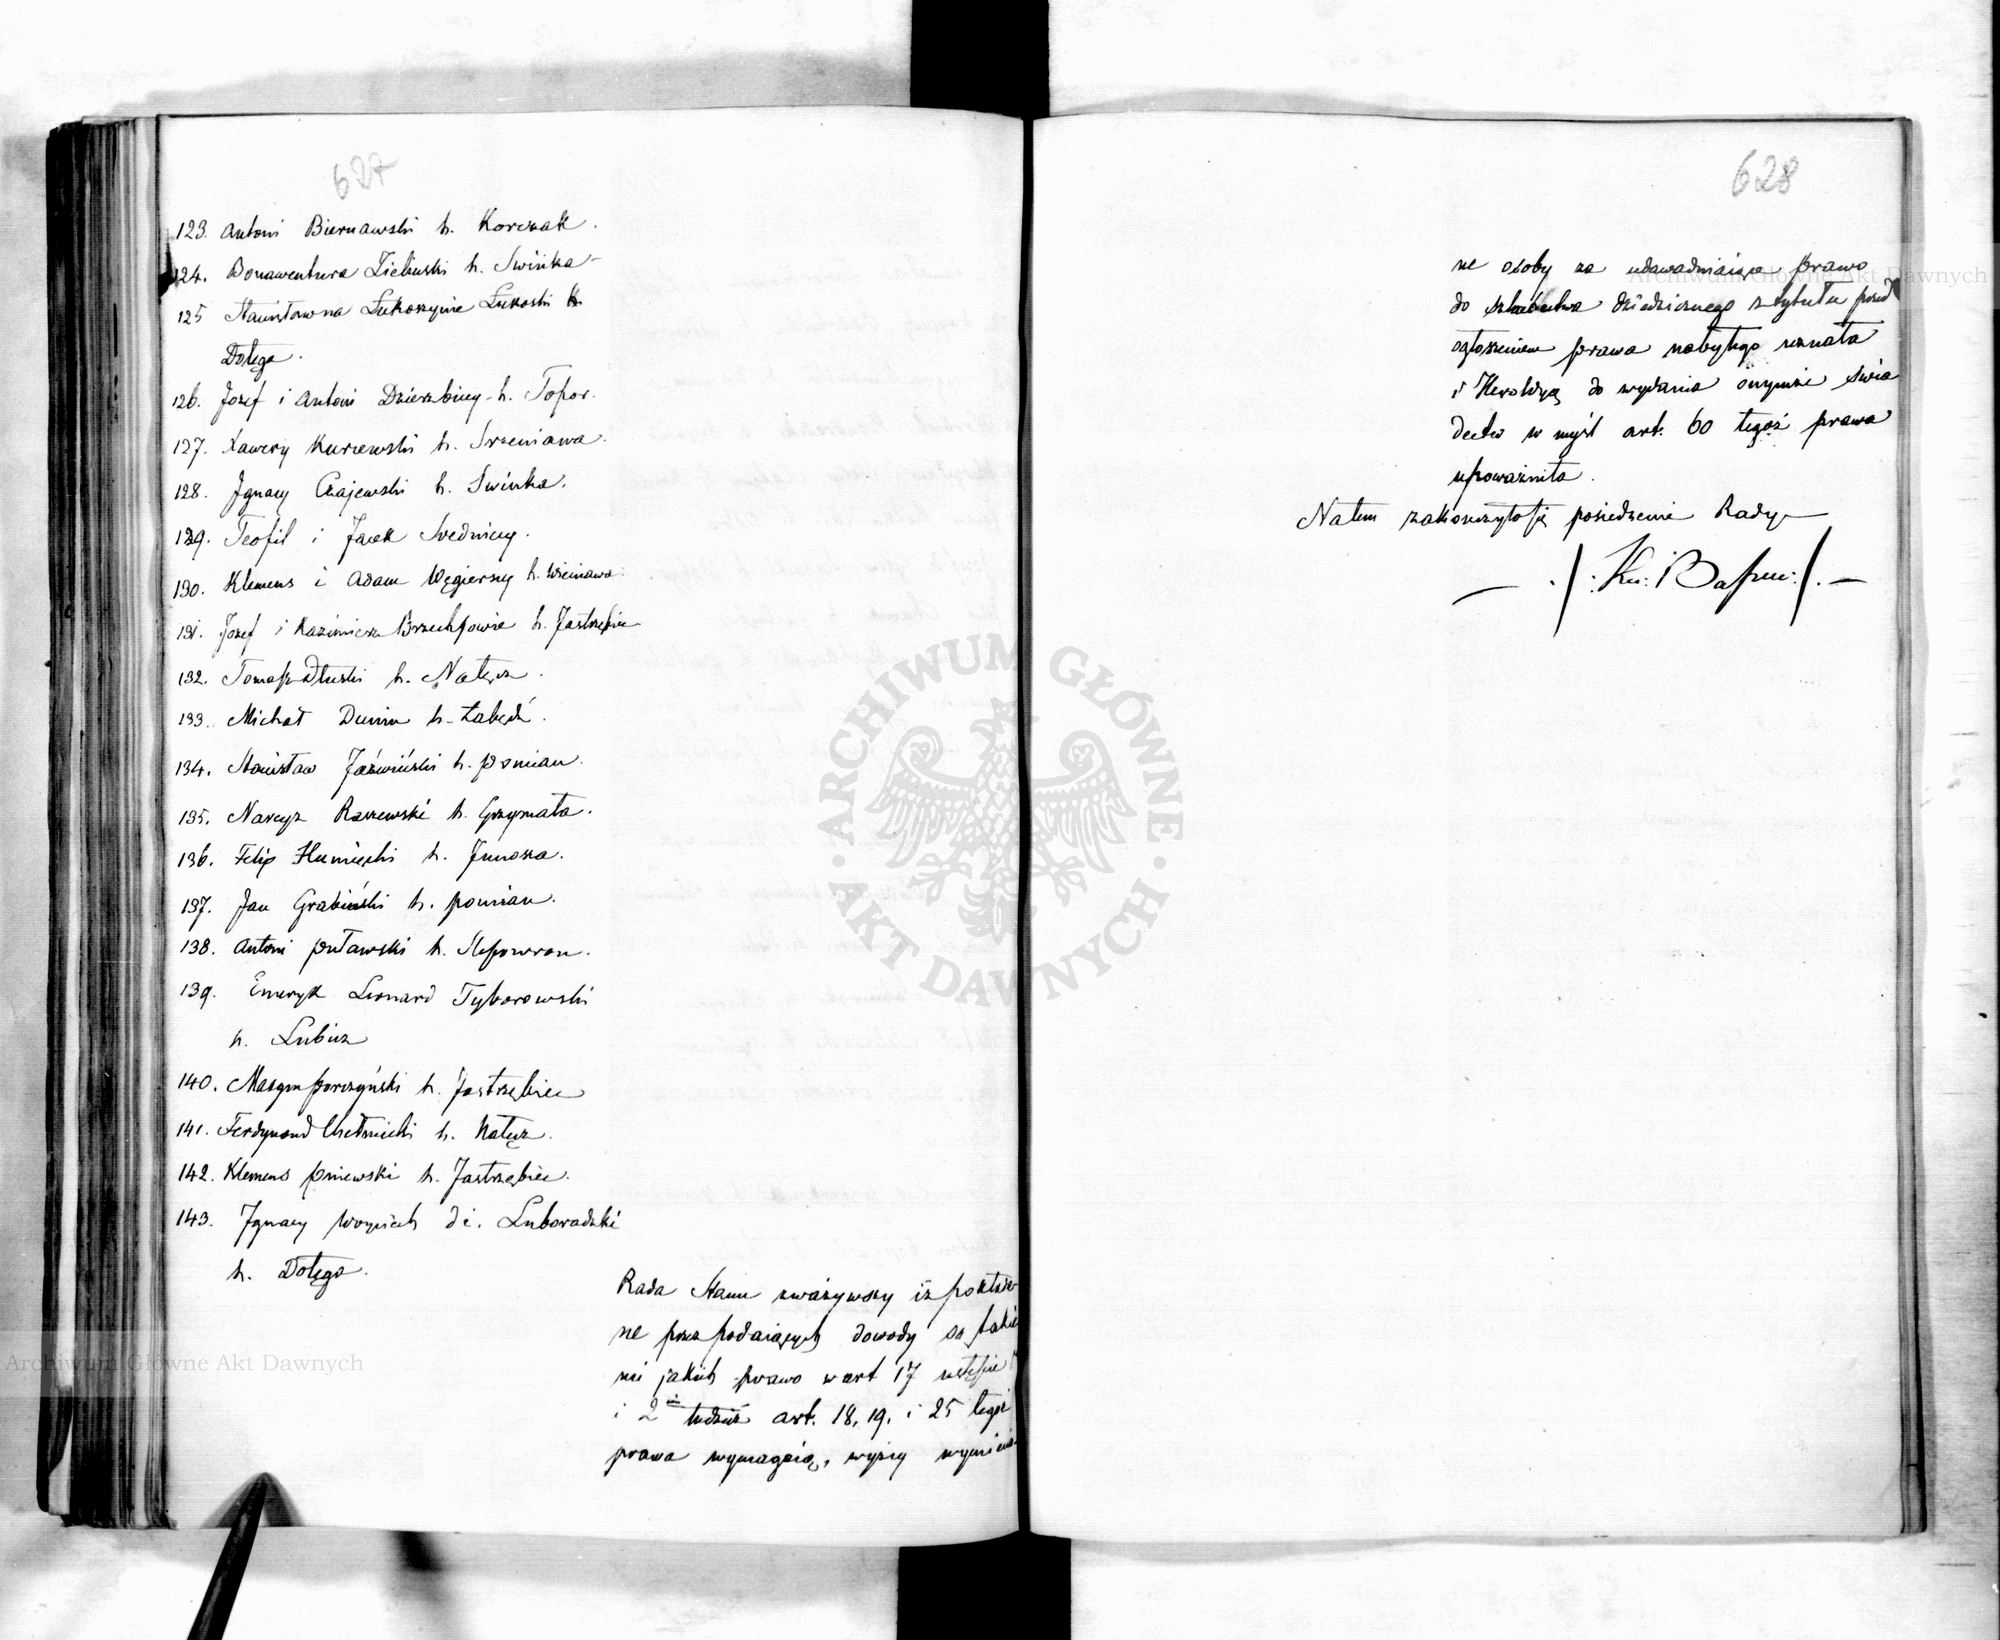 627
123. Antoni Biernawski h. Korczak.
124. Bonawentura Zieliński h. Świnka
125 Stanisław na Łukoszynie Łukoski h.
Dołęga.
126. Józef i Antoni Dzierzbiccy h. Topor.
127. Xawery Kurzewski h. Srzeniawa.
128. Ignacy Czajewski h. Świnka.
129. Teofil i Jacek Sredniccy.
130. Klemens i Adam Węgierscy h. Wieniawa.
131. Józef i Kazimierz Brzechfowie h. Jastrzębiec
132. Tomasz Dłuski h. Nałęcz.
133. Michał Dunin h. Łabędź.
134. Stanisław Jaźwiński h. Pomian.
135. Narcyz Raszewski h. Grzymała.
136. Filip Humięcki h. Junosza.
137. Jan Grabiński h. Pomian.
138. Antoni Puławski h. Slepowron.
139. Emeryk Leonard Tyborowski
h. Lubicz
140. Maxym Porczyński h. Jastrzębiec
141. Ferdynand Chełmicki h. Nałęcz.
142. Klemens Pniewski h. Jastrzębiec.
143. Ignacy Woyciech di. Luboradzki
h. Dołęga.
Rada Stanu zważywszy iż
ne przez podaiących dowody są takie
mi jakich prawo w art 17 ustępie 1
i 2im tudzież art. 18, 19, i 25 tegoż
prawa wymagaią, wyżey wymienio-
628
ne osoby za udawadniaiące prawo
do szlachectwa dziedzicznego z tytułu przed
ogłoszeniem prawa nabytego uznała
i Heroldyą do wydania onymże świa
dectw w myśl art. 60 tegoż prawa
upoważniła.
Natem zakończyło się posiedzenie Rady
ARCHIWUM GŁÓWNE AKT DAWNYCH
Archiwum Główne Akt Dawnych
Archiwum Główne Akt Dawnych